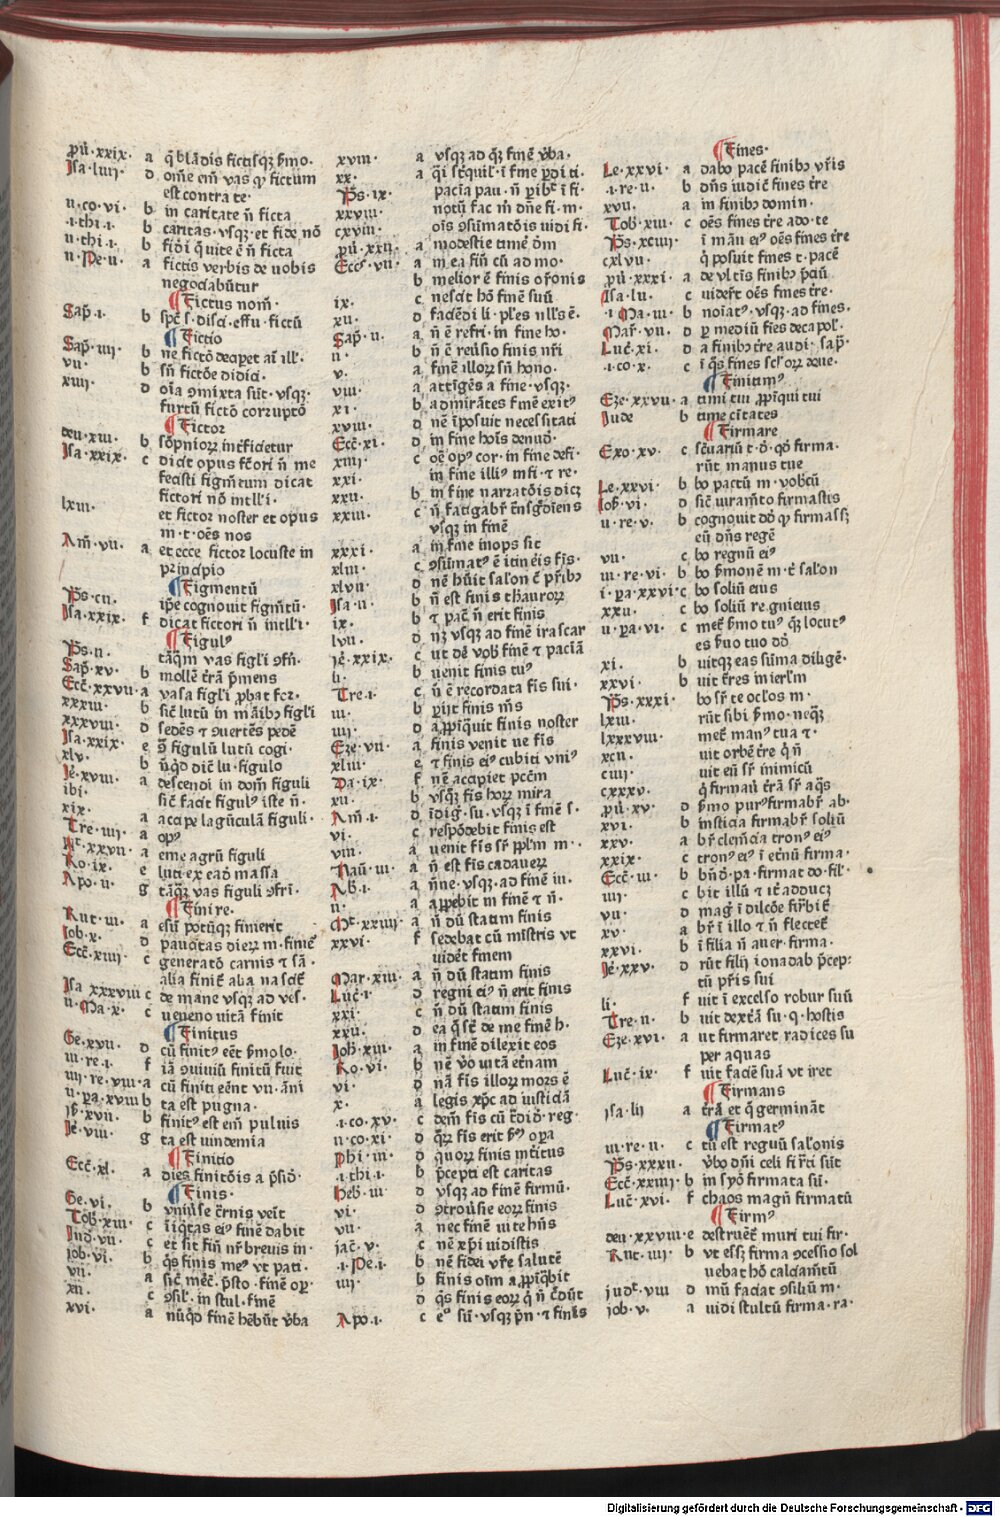 ꝓů·xxix· a q̄ blādis fictisqꝫ ẜmo·
Isa·liiii· d om̄e em̄ vas qꝫ fictum
est contra te·
ii·co·vi· b in caritate n̄ ficta
·i·thi·i· b caritas·vsqꝫ·et fide nō
ii·thi·i· b fidei quite ē n̄ ficta
ii·Pe·ii· a fictis verbis de uobis
negociabūtur
¶Fictus nom̄·
Sap̄·i· b spc̄ s·disci·effu·fictū
¶Fictio
Sap̄·iiii· b ne fictō decipet aī ill'·
vii· b sn̄ fictōe didici·
xiiii· d oīa ꝯmixta sūt·vsqꝫ·
furtū fictō corruptō
¶Fictor
deu·xiii· b sōpniorꝝ int̄ficietur
Isa·xxix· c dicat opus fc̄ori n̄ me
fecisti figm̄tum dicat
fictori nō intll'i·
lxiii· et fictor noster et opus
m·t·oēs nos
Am̄·vii· a et ecce fictor locuste in
principio
¶Figmentū
Ps·cii· ip̄e cognouit figm̄tū·
Isa·xxix· f dicat fictori n̄ intll'i·
¶Figulꝰ
Ps·ii· tāqm̄ vas figl'i ꝯfn̄·
Sap̄·xv· b mollē t̄rā p̄mens
Ecc̄·xxvii· a vasa figl'i ꝓbat foꝛ·
xxxiii· b sic̄ lutū in māibꝰ figl'i
xxxviii· d sedēs ⁊ ꝯuertēs pedē
Isa·xxix· e ꝯ̄ figulū lutū cogi·
xlv· b nūqd dic̄ lu·figulo
Ie·xviii· a descendi in dom̄ figuli
ibi· sic̄ facit figulꝰ iste n̄·
xix· a accipe lagūculā figuli·
Tre·iiii· a opꝰ
Mt·xxvii· a eme agrū figuli
Ro·ix· e luti ex eadē massa
Apo·ii· g tāqꝫ vas figuli ꝯfri·
¶Finire·
Rut·iii· a esū potūqꝫ finierit
Iob·x· d paucitas dierꝝ m·finiēᵗ
Ecc̄·xiiii· c generatō carnis ⁊ sā·
alia finiēᵗ alia nasciēᵗ
Isa xxxviii c de mane vsqꝫ ad ves·
ii·Ma·x· c ueneno uitā finit
¶Finitus
Ge·xvii· d cū finitꝰ eēt ẜmo lo·
iii·re·i· f iā ꝯuiuiū finitū fuit
iiii·re·viii· a cū finiti eēnt vii·āni
ii·pa·xviii b ta est pugna·
Ps·xvii· b finitꝰ est em̄ puluis
Ie·viii· g ta est uindemia
¶Finitio
Ecc̄·xl· a dies finitōis a p̄siō·
¶Finis·
Ge·vi· b vniūse c̄rnis veīt
Tob·xiii· c īiq̄tas eiꝰ finē dabit
Iud·vii· c et sit fin̄ nr̄ breuis in·
iob·vi· b q̄s finis meꝰ vt pati·
vii· a sic̄ merc̄·p̄sto·finē oꝑ·
xii· c ꝯsil'·in stul·finē
xvi· a nūqd finē hēbūt v̄ba
xviii· a vsqꝫ ad qꝫ finē v̄ba·
xx· a q̄i st̄quil'·ī fine ꝑdi ti·
Ps·ix· paciā pau·n̄ ꝑib̄ᵗ ī fi·
xxxviii· notū fac m̄ dn̄e fi·m·
cxviii· oīs ꝯsūmatōis uidi fi·
ꝓů·xxii· a modestie timē dm̄
Ecc̄·vii· a in ea fin̄ cū ad mo·
b melior ē finis or̄onis
ix· c nescit hō finē suū
xii· d faciēdi li·pl'es nll's ē·
Sap̄·ii· a n̄ ē refri·in fine ho·
ii· b n̄ ē reūsio finis nr̄i
v· a finē illorꝝ sn̄ hono·
viii· a attigēs a fine·vsqꝫ·
xi· b admirātes finē exitꝰ
xviii· d nec īposuit necessitati
Ecc̄·xi· d in fine hoīs denud·
xiiii· c oē opꝰ cor·in fine defi·
xxi· in fine illiꝰ infi·⁊ re·
xxii· b in fine narratōis dicꝫ
xxiii· c n̄ fatigabr̄ t̄nsgdiens
vsqꝫ in finē
xxxi· a in fine inops sit
xliii· c ꝯsūmatꝰ ē itinēis fīs·
xlvii· d nē hūit salon c̄ pr̄ibꝰ
Isa·ii· b n̄ est finis thaurorꝝ
ix· b ⁊ pac̄ n̄ erit finis
lvii· d nꝫ vsqꝫ ad finē irascar
ie·xxix· c ut dē vob̄ finē ⁊ paciā
li· b uenit finis tuꝰ
Tre·i· c n̄ ē recordata fīs sui·
iii· b ꝑijt finis m̄s
iiii· d aꝓpīquit finis noster
Eze·vii· a finis venit ue fīs
xliii· e ⁊ finis eiꝰ cubiti vniꝰ
Da·ix· f nē accipiet pcc̄m
xii· b vsqꝫ fīs horꝝ mira
Am̄·i· d īdig·su·vsqꝫ ī finē s·
vi· c respōdebit finis est
viii· a uenit fīs sꝛ pplm̄ m·
Naū·iii· a n̄ est fīs cadauerꝝ
Ab·i· a n̄ne·vsqꝫ·ad finē in·
ii· a apꝑebit in finē ⁊ n̄·
Mt·xxiiii· a n̄ dū statim finis
xxvi· f sedebat cū mīstris vt
uidēt finem
Mar·xiii· a n̄ dū statim finis
Luc̄·i· d regni eiꝰ n̄ erit finis
xxi· c n̄ dū statim finis
xxii· d ea q̄ st̄ de me finē h·
Ioh·xiii· a in finē dilexit eos
Ro·vi· b nē v̄o uitā et̄nam
vi· d nā fīs illorꝝ mors ē
x· a legis xp̄c ad iusticiā
·i·co·xv· c dem̄ fīs cū t̄diđ·reg·
ii·co·xi· d q̄rꝝ fīs erit ẜꝫ oꝑa
Phi·iii· d quorꝝ finis int̄itus
·i·thi·i· b p̄cepti est caritas
Heb·iii· d vsqꝫ ad finē firmū·
vi· d ꝯtrouise eorꝝ finis
vii· a nec finē uite hn̄s
iac̄·v· c nē xp̄i uidistis
·i·Pe·i· b nē fidei vr̄e salutē
iiii· b finis oīm aꝓpīqbit
d q̄s finis eorꝝ q̄ n̄ c̄dūt
Apo·i· c eᵒ sū·vsqꝫ p̄n·⁊ finis
¶Fines·
Le·xxvi· a dabo pacē finibꝰ vr̄is
·i·re·ii· b dn̄s iudic̄ fines t̄re
xvii· a in finibꝰ domin·
Tob·xiii· c oēs fines t̄re ado·te
Ps·xciiii· ī māu eiꝰ oēs fines t̄re
cxlvii· q̄ posuit fines t·pacē
ꝓů·xxxi· a de vltīs finibꝰ p̄ciū
Isa·lii· c uidēt oēs fines t̄re·
·i·Ma·iii· b noīatꝰ·vsqꝫ·ad fines·
Mar̄·vii· d ꝑ mediū fies decapol'·
Luc̄·xi· d a finibꝰ t̄re audi·sap̄·
·i·co·x· c ī q̄s fines scl'orꝝ deue·
¶Finitimꝰ
Eze·xxvii· a timi tui ꝓpīqui tui
Iude b time cītates
¶Firmare
Exo·xv· c sc̄uariū t·d·qđ firma·
rūt manus tue
Le·xxvi· b bo pactū m·vobcū
Iob·vi· d sic̄ iuramēto firmastis
ii·re·v· b cognouit dđ qꝫ firmassꝫ
eū dn̄s regē
vii· c bo regnū eiꝰ
iii·re·vi· b bo ẜmonē m·c̄ salon
i·pa·xxvi· c bo soliū eius
xxii· c bo soliū regni eius
ii·pa·vi· c mec̄ ẜmo tuꝰ qꝫ locutꝰ
es ẜuo tuo dđ
xi· b uitqꝫ eas sūma diligē·
xxvi· b uit t̄res in ierl'm
Ps·xxxi· bo sꝛ te ocl'os m·
lxiii· rūt sibi ẜmo·neqꝫ
lxxxviii· mec̄ manꝰ tua ⁊·
xcii· uit orbē t̄re q̄ n̄
ciiii· uit eū sꝛ inimicū
cxxxv· q̄ firmauī t̄rā sꝛ aq̄s
ꝓů·xv· d ẜmo purꝰ firmabꝛ ab·
xvi· b insticia firmabꝛ soliū
xxv· a bꝛ clemēcia tronꝰ eiꝰ
xxix· c tronꝰ eiꝰ ī et̄nū firma·
Ecc̄·iii· b bn̄đ·pa·firmat do·fil'·
iiii· c bit illū ⁊ it̄ adducꝫ
vii· d maḡ ī dilcōe fir̄biēᵗ
xv· a bꝛ ī illo ⁊ n̄ flectetᵗ
xxvi· b ī filia n̄ auer·firma·
Ie·xxv· d rūt filij ionadab p̄cep·
tū pr̄is sui
li· f uit ī excelso robur suū
Tre·ii· b uit dextā su·q·hostis
Eze·xvi· a ut firmaret radices su
per aquas
Luc̄·ix· f uit faciē suā vt iret
¶Firmans
Isa·lii a t̄rā et q̄ germināt
¶Firmatꝰ
iii·re·ii· c tū est regnū salonis
Ps·xxxii· v̄bo dn̄i celi fir̄ti sūt
Ecc̄·xxiiii· b in syō firmata sū·
Luc̄·xvi· f chaos magn̄ firmatū
¶Firmꝰ
deu·xxviii· e destruēᵗ muri tui fir·
Rut·iiii· b vt essꝫ firma ꝯcessio sol
uebat hō calciam̄tū
iudꝰ·viii d mū faciat ꝯsiliū m·
iob·v· a uidi stultū firma·ra·
Digitalisierung gefördert durch die Deutsche Forschungsgemeinschaft - DFG